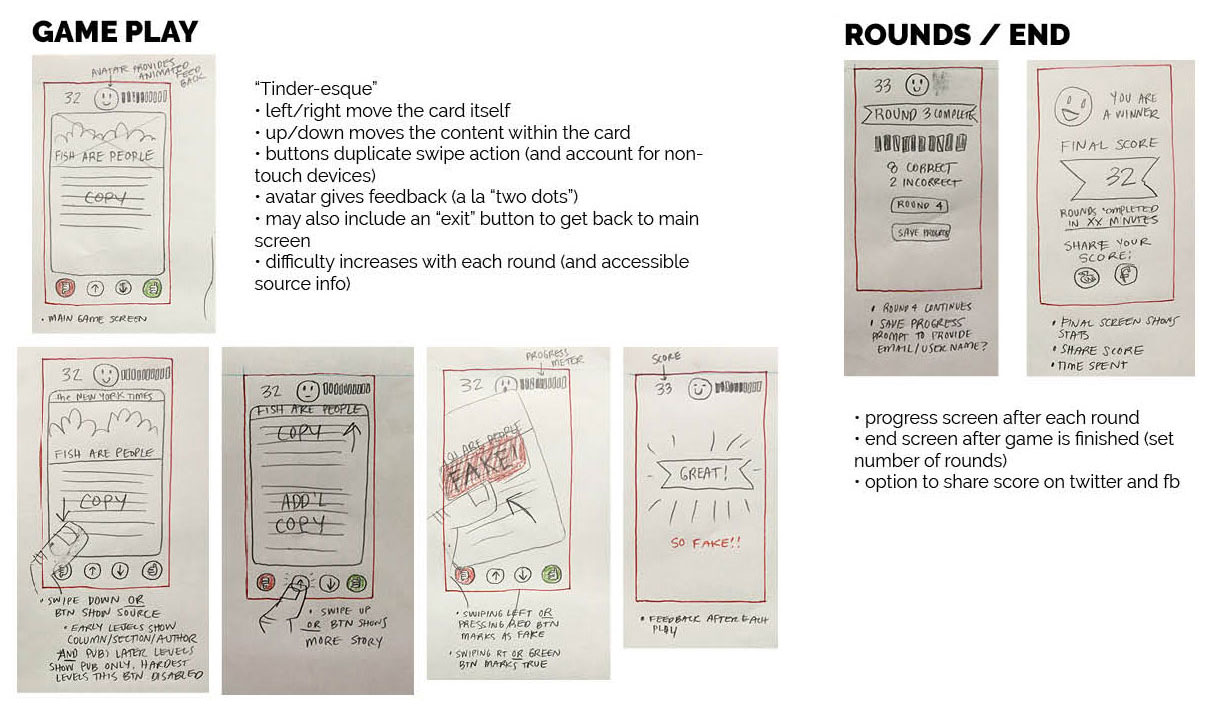 GAME PLAY
AVATAR PROVIDES
ANIMATED
FEED
BACK
32
FISH ARE PEOPLE
COPY
• MAIN GAME SCREEN
“Tinder-esque”
• left/right move the card itself
• up/down moves the content within the card
• buttons duplicate swipe action (and account for non-
touch devices)
• avatar gives feedback (a la “two dots”)
• may also include an “exit” button to get back to main
screen
• difficulty increases with each round (and accessible
source info)
32
The NEW YORK TIMES
FISH ARE PEOPLE
COPY
• SWIPE DOWN OR
BTN SHOW SOURCE
• EARLY LEVELS SHOW
COLUMN/SECTION/AUTHOR
AND PUB; LATER LEVELS
SHOW PUB ONLY, HARDEST
LEVELS THIS BTN DISABLED
32
FISH ARE PEOPLE
COPY
ADD'L
COPY
• SWIPE UP
OR BTN SHOWS
MORE STORY
PROGRESS
METER
32
ARE PEOPLE
FAKE!
• SWIPING LEFT OR
PRESSING RED BTN
MARKS AS FAKE
• SWIPING RT OR GREEN
BTN MARKS TRUE
SCORE
33
GREAT!
SO FAKE!!
• FEEDBACK AFTER EACH
PLAY
ROUNDS / END
33
ROUND 3 COMPLETE
8 CORRECT
2 INCORRECT
ROUND 4
SAVE PROGRESS
• ROUND 4 CONTINUES
• SAVE PROGRESS
PROMPT TO PROVIDE
EMAIL/USER NAME?
YOU ARE
A WINNER
FINAL SCORE
32
ROUNDS COMPLETED
IN XX MINUTES
SHARE YOUR
SCORE!
• FINAL SCREEN SHOWS
STATS
• SHARE SCORE
• TIME SPENT
• progress screen after each round
• end screen after game is finished (set
number of rounds)
• option to share score on twitter and fb